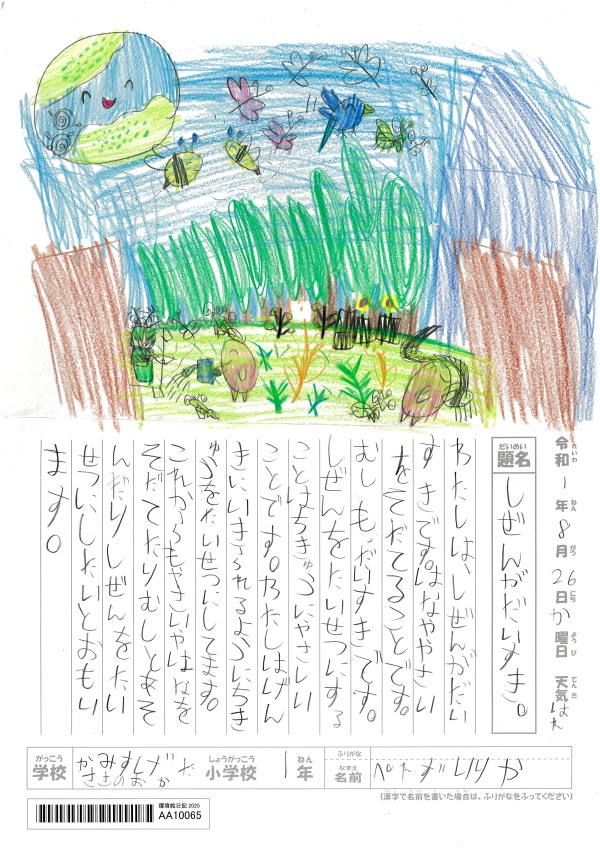 令和1年8月26日か曜日 天気はれ
れいわ ねん がつ にち ようび てんき
だいめい
題名 しぜんがだいすき。
わたしは、しぜんがだい
すきです。はなややさい
をそだてることです。
むしも、だいすきです。
しぜんをたいせつにする
ことはちきゅうにやさしい
ことです。わたしはげん
きにいきられるようにちき
ゅうをたいせつにしてます。
これからもやさいやはなを
そだてたりむしとあそ
んだりしぜんをたい
せつにしたいとおもい
ます。
がっこう しょうがっこう ねん ふりがな
学校 小学校 1年 なまえ 名前
(漢字で名前を書いた場合は、ふりがなをふってください)
環境絵日記 2025
AA10065